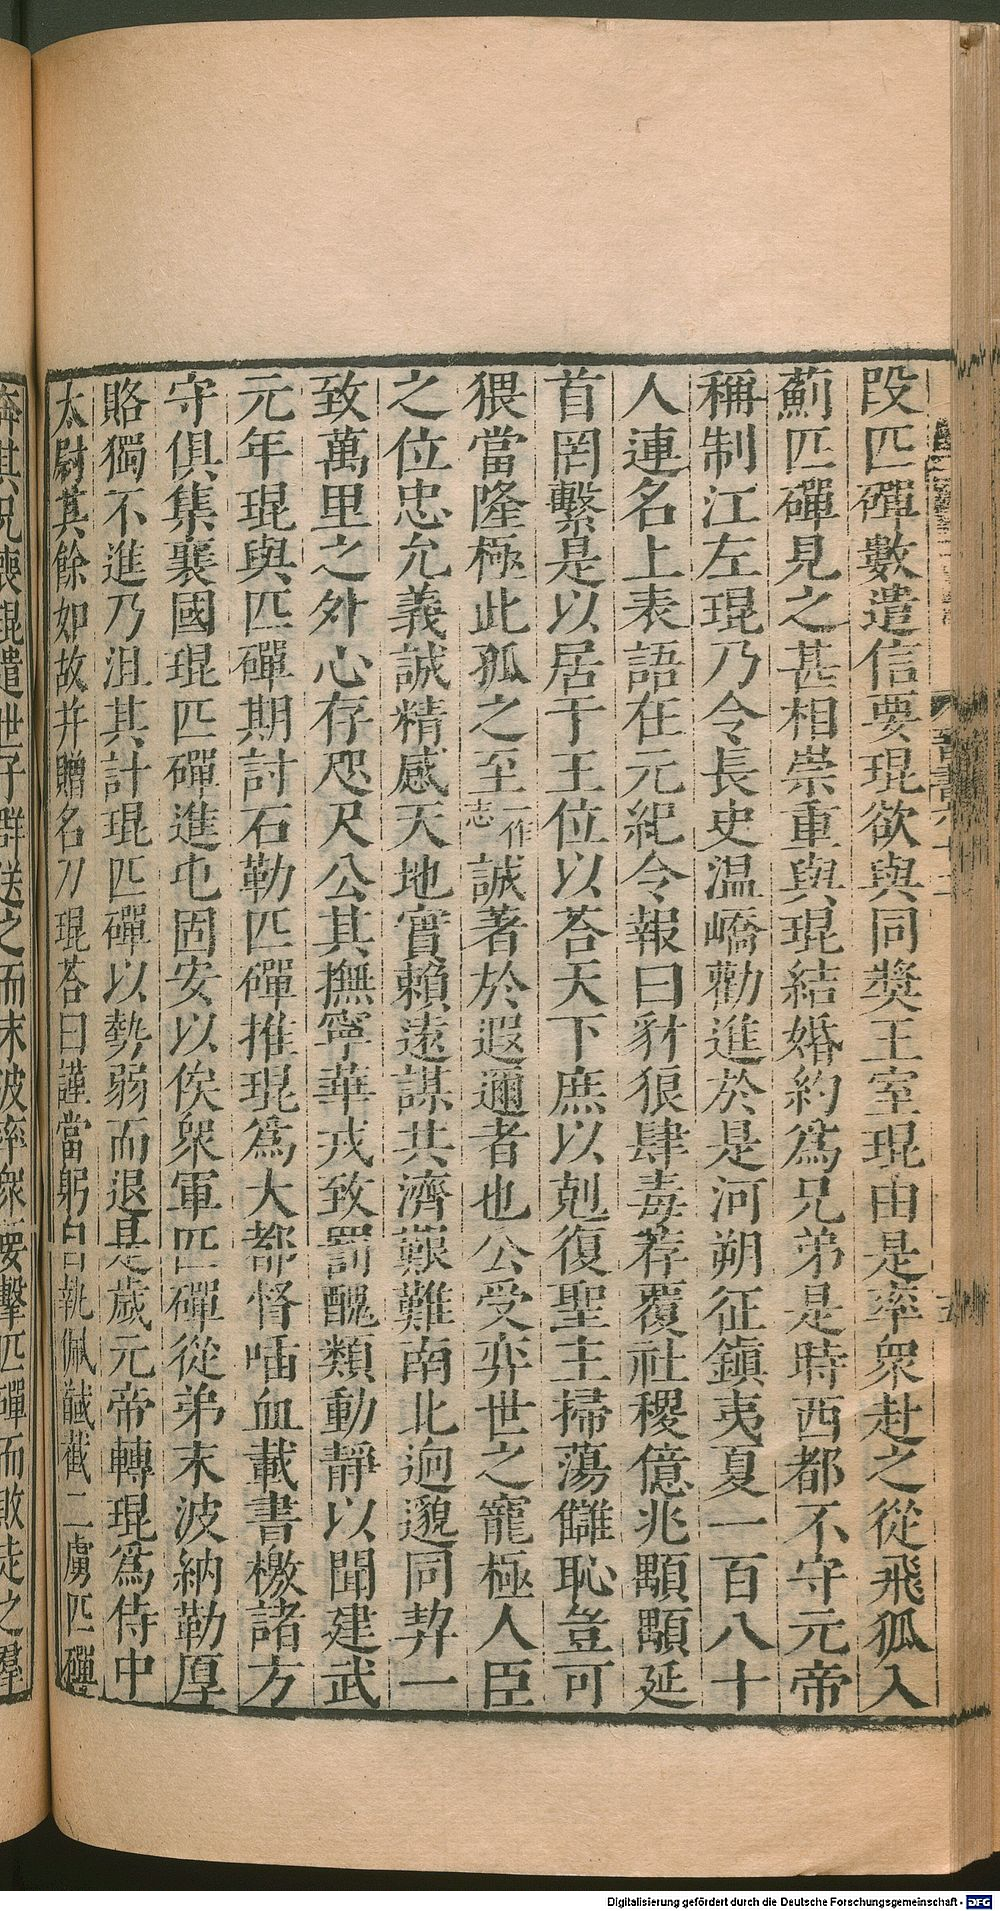 段匹磾數遣信要琨欲與同奬王室琨由是率衆赴之從飛狐入
薊匹磾見之甚相崇重與琨結婚約爲兄弟是時西都不守元帝
稱制江左琨乃令長史温嶠勸進於是河朔征鎭夷夏一百八十
人連名上表語在元紀令報曰豺狼肆毒荐覆社稷億兆顒顒延
首罔繫是以居于王位以荅天下庶以剋復聖主掃蕩讎恥豈可
猥當隆極此孤之至一作志誠著於遐邇者也公受弈世之寵極人臣
之位忠允義誠精感天地實賴遠謀共濟艱難南北迥邈同契一
致萬里之外心存咫尺公其撫寧華戎致罰醜類動靜以聞建武
元年琨與匹磾期討石勒匹磾推琨爲大都督喢血載書檄諸方
守俱集襄國琨匹磾進屯固安以俟衆軍匹磾從弟末波納勒厚
賂獨不進乃沮其計琨匹磾以勢弱而退是歲元帝轉琨爲侍中
太尉其餘如故并贈名刀琨荅曰謹當躬自執佩馘截二虜匹磾
奔其兄喪琨遣世子群送之而末波率衆要擊匹磾而敗走之羣
Digitalisierung gefördert durch die Deutsche Forschungsgemeinschaft - DFG